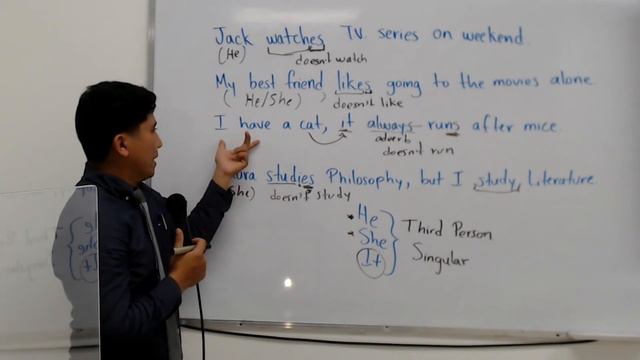 Jack watches TV series on weekend.
(He) doesn't watch
My best friend likes going to the movies alone
(He/She) doesn't like
I have a cat, it always runs after mice.
adverb
doesn't run
ora studies Philosophy, but I study Literature
she) doesn't study
He
She
It
Third Person
Singular